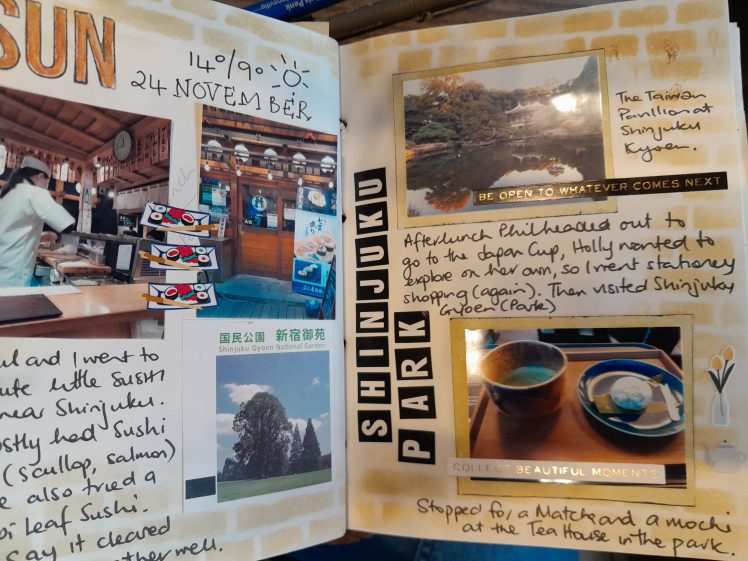 SUN
14°/9°
24 NOVEMBER
国民公園 新宿御苑
Shinjuku Gyoen National Garden
and I went to
little SUSHI
near Shinjuku.
had Sushi
(scullop, salmon)
also tried a
leaf Sushi.
say it cleared
well.
SHINJUKU
PARK
The Taiwan
Pavilion at
Shinjuku
Gyoen.
BE OPEN TO WHATEVER COMES NEXT
After lunch Phil headed out to
go to the Japan Cup, Holly wanted to
explore on her own, so I went stationery
shopping (again). Then visited Shinjuku
Gyoen (Park)
COLLECT BEAUTIFUL MOMENTS
Stopped for a Matcha and a mochi
at the Tea House in the park.